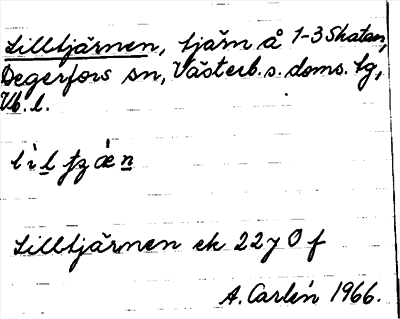 Lilltjärnen, tjärn å 1-3 Skatan,
Degerfors sn, Västerb. s. doms. tg,
Vb. l.
Lilltjärnen ek 22y0f
A. Carlén 1966.